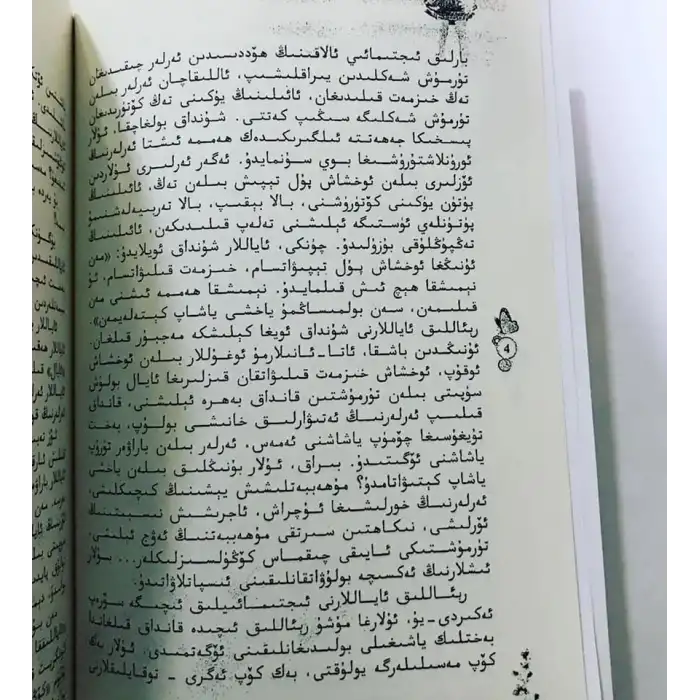 بارلىق ئىجتىمائىي ئالاقىنىڭ ھۆددىسىدىن ئەرلەر چىقىدىغان
تۇرمۇش شەكلىدىن يىراقلىشىپ، ئاللىقاچان ئەرلەر بىلەن
تەڭ خىزمەت قىلىدىغان، ئائىلىنىڭ يۈكىنى تەڭ كۆتۈرىدىغان
تۇرمۇش شەكلىگە سىڭىپ كەتتى. شۇنداق بولغاچقا، ئۇلار
پىسخىكا جەھەتتە ئىلگىرىكىدەك ھەممە ئىشتا ئەرلەرنىڭ
ئورۇنلاشتۇرۇشىغا بوي سۇنمايدۇ. ئەگەر ئەرلىرى ئۇلاردىن
ئۆزلىرى بىلەن ئوخشاش پۇل تېپىش بىلەن تەڭ، ئائىلىنىڭ
پۈتۈن يۈكىنى كۆتۈرۈشنى، بالا بېقىپ، بالا تەربىيەلەشنىمۇ
پۈتۈنلەي ئۈستىگە ئېلىشنى تەلەپ قىلىدىكەن، ئائىلىنىڭ
تەڭپۇڭلۇقى بۇزۇلىدۇ. چۈنكى، ئاياللار شۇنداق ئويلايدۇ: «مەن
ئۇنىڭغا ئوخشاش پۇل تېپىۋاتسام، خىزمەت قىلىۋاتسام، ئۇ
نېمىشقا ھېچ ئىش قىلمايدۇ. نېمىشقا ھەممە ئىشنى مەن
قىلىمەن، سەن بولمىساڭمۇ ياخشى ياشاپ كېتەلەيمەن».
رېئاللىق ئاياللارنى شۇنداق ئويغا كېلىشكە مەجبۇر قىلغان.
ئۇنىڭدىن باشقا، ئاتا-ئانىلارمۇ ئوغۇللار بىلەن ئوخشاش
ئوقۇپ، ئوخشاش خىزمەت قىلىۋاتقان قىزلىرىغا ئايال بولۇش
سۈپىتى بىلەن تۇرمۇشتىن قانداق بەھرە ئېلىشنى، قانداق
قىلىپ ئەرلەرنىڭ ئەتىۋارلىق خانىشى بولۇپ، بەخت
تۇيغۇسىغا چۆمۈپ ياشاشنى ئەمەس، ئەرلەر بىلەن باراۋەر تۇرۇپ
ياشاشنى ئۆگىتىدۇ. بىراق، ئۇلار بۇنىڭلىق بىلەن ياخشى
ياشاپ كېتىۋاتامدۇ؟ مۇھەببەتلىشىش يېشىنىڭ كىچىكلىشى،
ئەرلەرنىڭ خورلىشىغا ئۇچراش، ئاجرىشىش نىسبىتىنىڭ
ئۆرلىشى، نىكاھتىن سىرتقى مۇھەببەتنىڭ ئەۋج ئېلىشى،
تۇرمۇشتىكى ئايىقى چىقماس كۆڭۈلسىزلىكلەر... شۇلار
ئىشلارنىڭ ئەكسىچە بولۇۋاتقانلىقىنى ئىسپاتلاۋاتىدۇ.
رېئاللىق ئاياللارنى ئىجتىمائىيلىق ئىچىگە سۆرەپ
ئەكىردى-يۇ، ئۇلارغا مۇشۇ رېئاللىق ئىچىدە قانداق قىلغاندا
بەختلىك ياشىغىلى بولىدىغانلىقىنى ئۆگەتمىدى. ئۇلار بەك
كۆپ مەسىلىلەرگە يولۇقتى، بەك كۆپ ئەگرى - توقايلىقلارنى
4